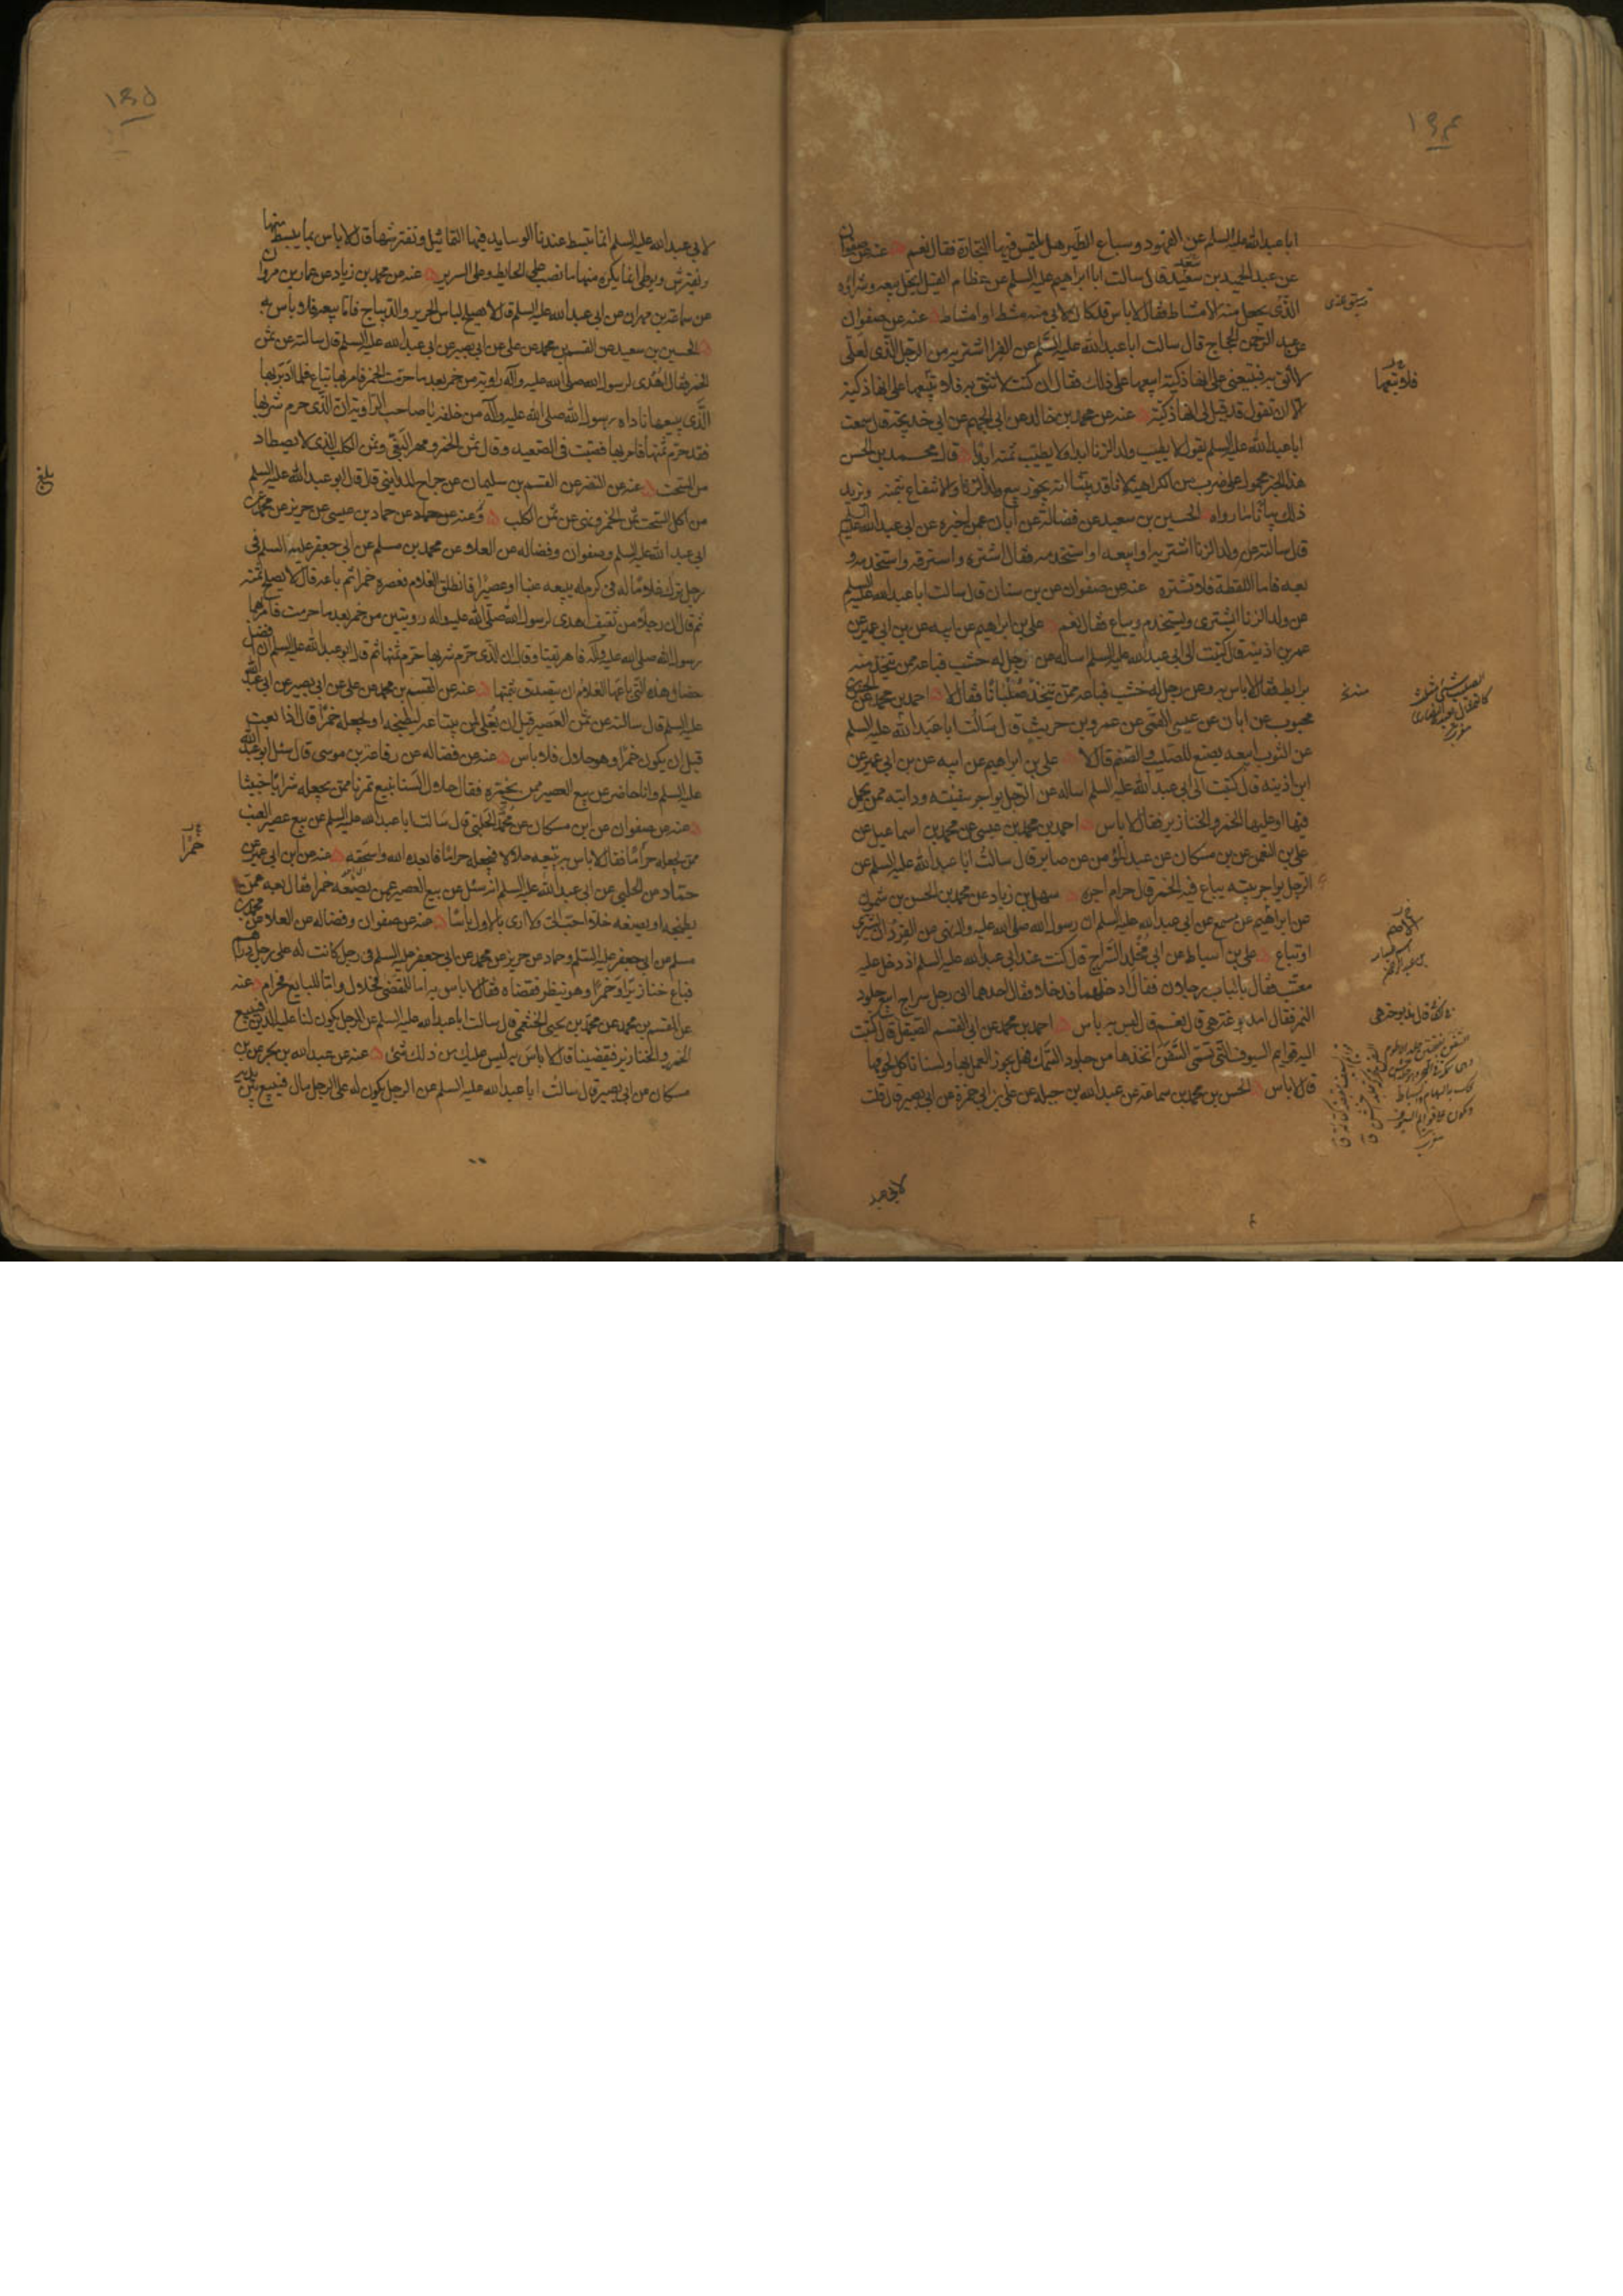 ابا عبد الله عليه السلم عن الفهود وسباع الطير هل يلتمس فيها التجارة فقال نعم عنه عن صفوان
عن عبد الحميد بن سعيد قال سالت ابا ابراهيم عليه السلم عن عظام الفيل ايحل بيعه وشراؤه
الذى يجعل منه الامشاط فقال لا باس قد كان لابى منه مشط او امشاط عنه عن صفوان
عن عبد الرحمن الحجاج قال سالت ابا عبد الله عليه السلم عن الفرا اشتريه من الرجل الذى لعلى
لا اثق به فيبيعنى على انها ذكية ابيعها على ذلك فقال ان كنت لا تثق به فلا تبعها على انها ذكية
الا ان تقول قد قيل لى انها ذكية عنه عن محمد بن خالد عن ابى الجهم عن ابى خديجة قال سمعت
ابا عبد الله عليه السلم يقول لا يطيب ولد الزنا ابدا ولا يطيب ثمنه ابدا قال محمد بن الحسن
هذا الخبر محمول على ضرب من الكراهية لانا قد بينا انه يجوز بيع ولد الزنا والانتفاع بثمنه ويزيد
ذلك بيانا ما رواه الحسين بن سعيد عن فضالة عن ابان عمن اخبره عن ابى عبد الله عليه السلم
قال سالته عن ولد الزنا اشتريه او ابيعه او استخدمه فقال اشتره واسترقه واستخدمه و
بعه فاما اللقطة فلا تشتره عنه عن صفوان عن بن سنان قال سالت ابا عبد الله عليه السلم
عن ولد الزنا ايشترى ويستخدم ويباع فقال نعم على بن ابراهيم عن ابيه عن بن ابى عمير عن
عمر بن اذينة قال كتبت الى ابى عبد الله عليه السلم اساله عن رجل له خشب فباعه ممن يتخذ منه
برابط فقال لا باس به وعن رجل له خشب فباعه ممن يتخذه صلبانا فقال لا احمد بن محمد عن
محبوب عن ابان عن عيسى القمى عن عمرو بن حريث قال سالت ابا عبد الله عليه السلم
عن التوت ابيعه يصنع للصليب والصنم قال لا على بن ابراهيم عن ابيه عن بن ابى عمير عن
ابن اذينة قال كتبت الى ابى عبد الله عليه السلم اساله عن الرجل يواجر سفينته ودابته ممن يحمل
فيها او عليها الخمر والخنازير فقال لا باس احمد بن محمد بن عيسى عن محمد بن اسماعيل عن
على بن النعمن عن بن مسكان عن عبد المؤمن عن صابر قال سالت ابا عبد الله عليه السلم عن
الرجل يواجر بيته يباع فيه الخمر قال حرام اجره سهل بن زياد عن محمد بن الحسن بن شمون
عن ابراهيم عن مسمع عن ابى عبد الله عليه السلم ان رسول الله صلى الله عليه واله نهى عن القرد ان يشترى
او تباع على بن اسباط عن ابى مخلد السراج قال كنت عند ابى عبد الله عليه السلم اذ دخل عليه
معتب فقال بالباب رجلان فقال ادخلهما فدخلا فقال احدهما انى رجل سراج ابيع جلود
النمر فقال امدبوغة هى قال نعم قال ليس به باس احمد بن محمد عن ابى القسم الصيقل قال كتبت
اليه قوايم السيوف التى تسمى السفن اتخذها من جلود السمك فهل يجوز العمل بها ولسنا ناكل لحومها
قال لا باس الحسن بن محمد بن سماعة عن عبد الله بن جبلة عن على بن ابى حمزة عن ابى بصير قال قلت
لابى عبد
١٩٤
لابى عبد الله عليه السلم انما تبسط عندنا الوسايد فيها التماثيل ونفترشها قال لا باس بما يبسط منها
ويفترش ويوطى انما يكره منها ما نصب على الحايط وعلى السرير عنه عن محمد بن زياد عن عمار بن مروان
عن سماعة بن مهران عن ابى عبد الله عليه السلم قال لا يصلح لباس الحرير والديباج فاما بيعه فلا باس به
الحسين بن سعيد عن القسم بن محمد عن على عن ابى بصير عن ابى عبد الله عليه السلم قال سالته عن ثمن
الخمر فقال اهدى لرسول الله صلى الله عليه وآله راوية من خمر بعد ما حرمت الخمر فامر بها تباع فلما ادبر بها
الذى يبيعها ناداه رسول الله صلى الله عليه وآله من خلفه يا صاحب الراوية ان الذى حرم شربها
فقد حرم ثمنها فامر بها فصبت فى الصعيد وقال ثمن الخمر ومهر البغى وثمن الكلب الذى لا يصطاد
من السحت عنه عن النضر عن القسم بن سليمان عن جراح المداينى قال قال ابو عبد الله عليه السلم
من اكل السحت ثمن الخمر ونهى عن ثمن الكلب وعنه عن حماد عن حماد بن عيسى عن حريز عن محمد عن
ابى عبد الله عليه السلم وصفوان وفضاله عن العلاء عن محمد بن مسلم عن ابى جعفر عليه السلم فى
رجل ترك غلاما له فى كرم له يبيعه عنبا او عصيرا فانطلق الغلام فعصره خمرا ثم باعه قال لا يصلح ثمنه
ثم قال ان رجلا من ثقيف اهدى لرسول الله صلى الله عليه واله راويتين من خمر بعد ما حرمت فامر بهما
رسول الله صلى الله عليه وآله فاهريقتا وقال ان الذى حرم شربها حرم ثمنها ثم قال ابو عبد الله عليه السلم ان افضل
خصال هذه التى باعها الغلام ان يتصدق بثمنها عنه عن القسم بن محمد عن على عن ابى بصير عن ابى عبد الله
عليه السلم قال سالته عن ثمن العصير قبل ان يغلى لمن يبتاعه ليطبخه او يجعله خمرا قال اذا بعته
قبل ان يكون خمرا وهو حلال فلا باس عنه عن فضاله عن رفاعة بن موسى قال سئل ابو عبد الله
عليه السلم وانا حاضر عن بيع العصير ممن يخمره فقال حلال السنا نبيع تمرنا ممن يجعله شرابا خبيثا
عنه عن صفوان عن ابن مسكان عن محمد الحلبى قال سالت ابا عبد الله عليه السلم عن بيع عصير العنب
ممن يجعله حراما فقال لا باس به تبيعه حلالا فيجعله حراما فابعده الله واسحقه عنه عن ابن ابى عمير عن
حماد عن الحلبى عن ابى عبد الله عليه السلم انه سئل عن بيع العصير ممن يصنعه خمرا فقال بعه ممن
يطبخه او يصنعه خلا احب الى ولا ارى بالاول باسا عنه عن صفوان وفضاله عن العلا عن محمد بن
مسلم عن ابى جعفر عليه السلم وحماد عن حريز عن محمد عن ابى جعفر عليه السلم فى رجل كانت له على رجل دراهم
فباع خنازير او خمرا وهو ينظر فقضاه فقال لا باس به اما للمقضى فحلال واما للبايع فحرام عنه
عن القسم بن محمد عن محمد بن يحيى الخثعمى قال سالت ابا عبد الله عليه السلم عن الرجل يكون لنا عليه الدين فيبيع
الخمر والخنازير فيقضينا قال لا باس به ليس عليك من ذلك شئ عنه عن عبد الله بن بحر عن بن
مسكان عن ابى بصير قال سالت ابا عبد الله عليه السلم عن الرجل يكون له على الرجل مال فيبيع بين يديه
خمرا
بلغ
١٩٥